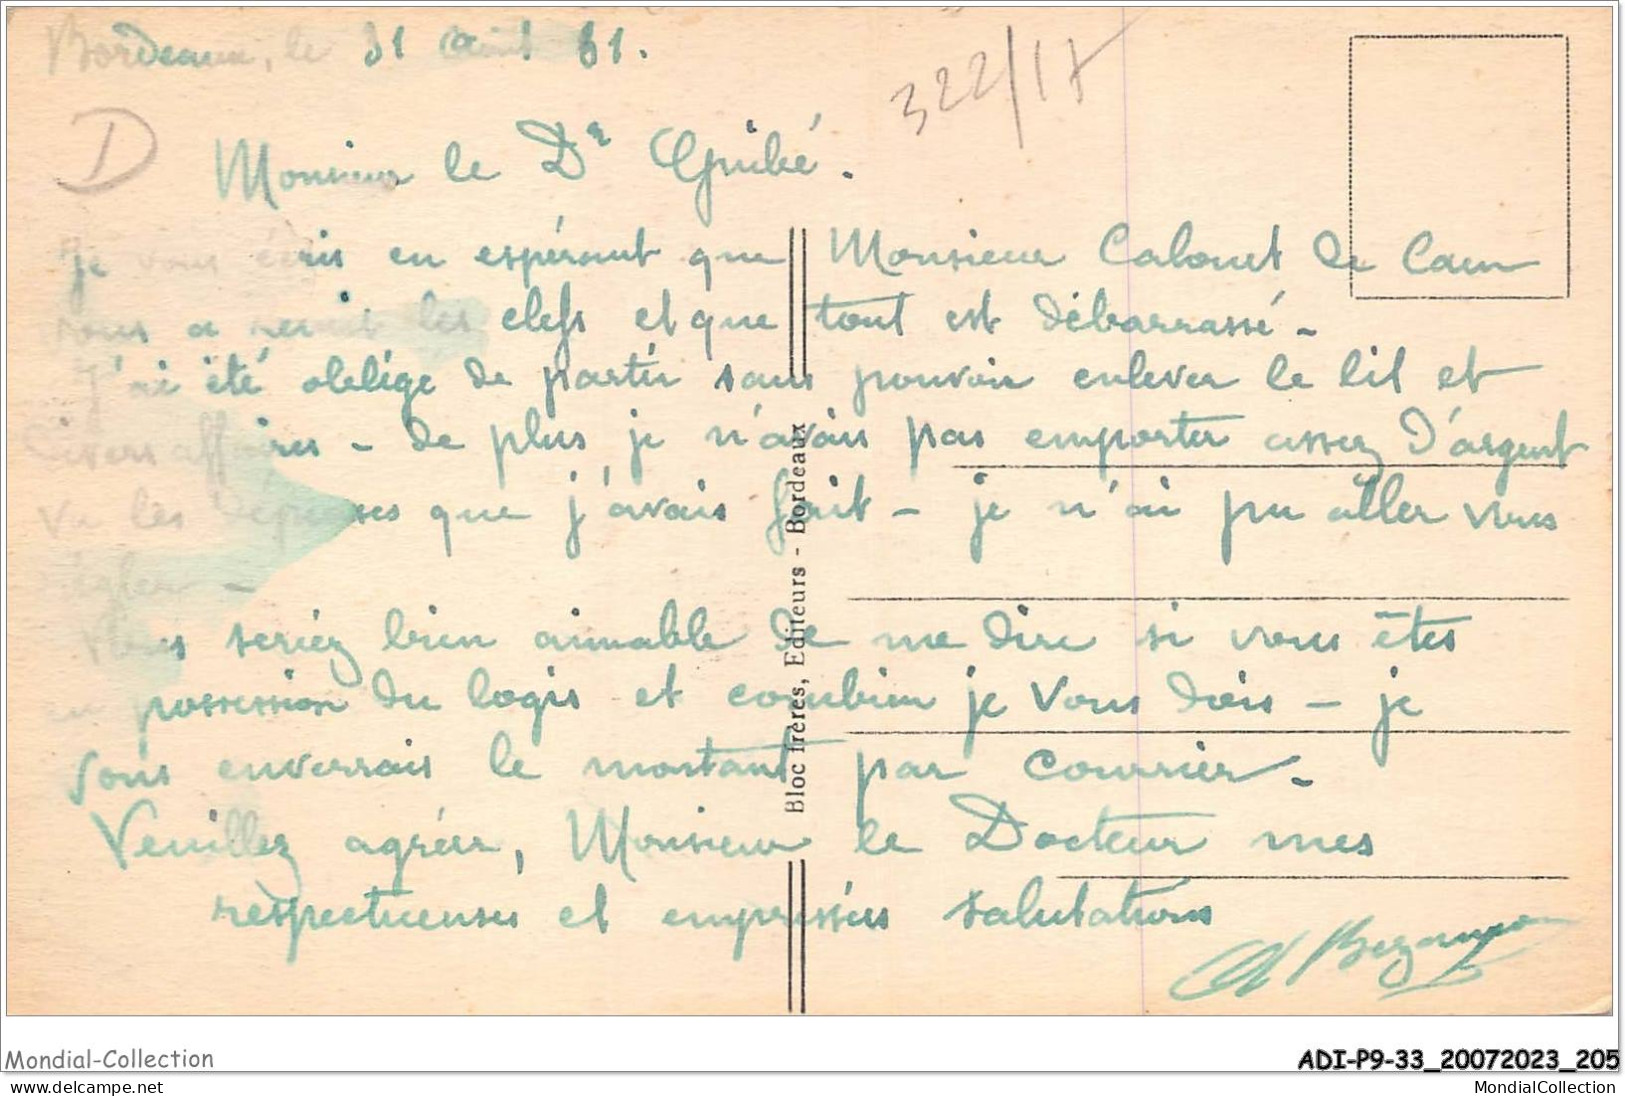 Bordeaux, le 31 août 31.
322/17
D
Monsieur le Dr Guibé.
Je vous écris en espérant que Monsieur Calonet de Caen
vous a remis les clefs et que tout est débarrassé -
J'ai été obligé de partir sans pouvoir enlever le lit et
divers affaires - de plus je n'avais pas emporter assez d'argent
vu les dépenses que j'avais fait - je n'ai pu aller vous
régler -
Vous seriez bien aimable de me dire si vous êtes
en possession du logis et combien je vous dois - je
vous enverrais le montant par courrier -
Veuillez agréer, Monsieur le Docteur mes
respectueuses et empressées salutations
Bloc frères, Editeurs - Bordeaux
Mondial-Collection
www.delcampe.net
ADI-P9-33_20072023_205
MondialCollection